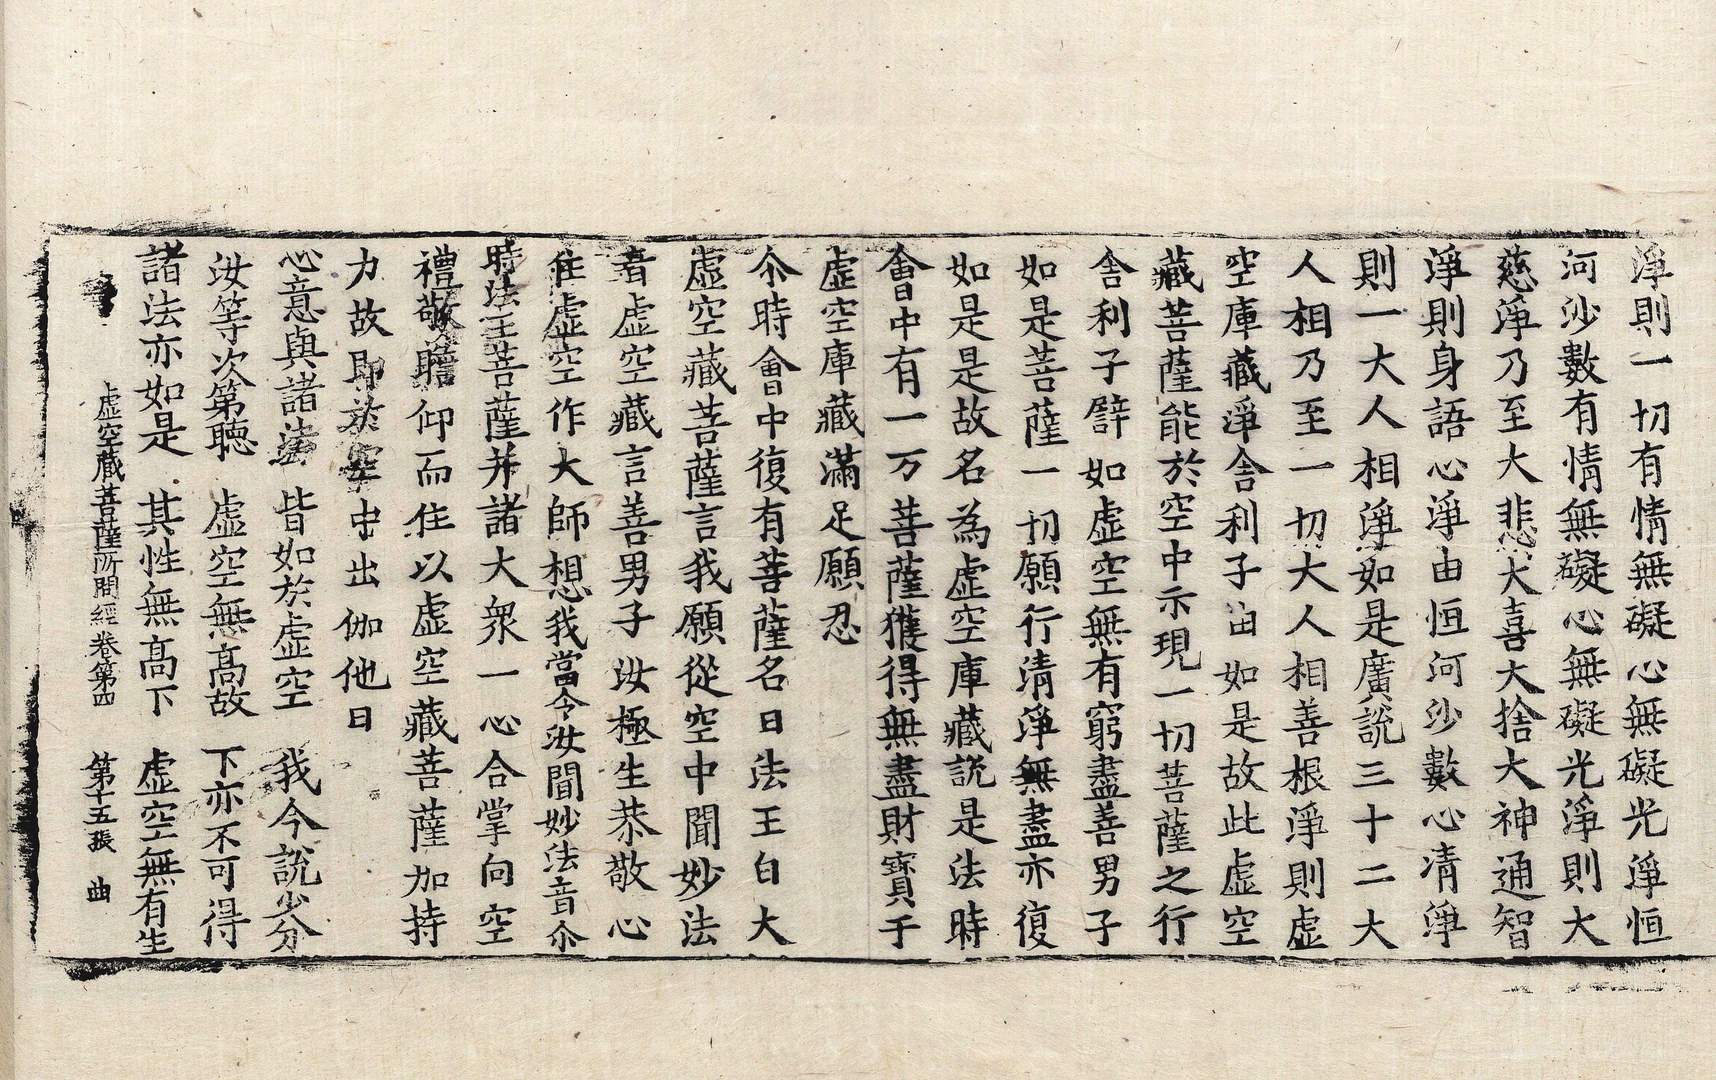 淨則一切有情無礙心無礙光淨恒
河沙數有情無礙心無礙光淨則大
慈淨乃至大悲大喜大捨大神通智
淨則身語心淨由恒河沙數心清淨
則一大人相淨如是廣說三十二大
人相乃至一切大人相善根淨則虛
空庫藏淨舍利子由如是故此虛空
藏菩薩能於空中示現一切菩薩之行
舍利子譬如虛空無有窮盡善男子
如是菩薩一切願行清淨無盡亦復
如是是故名為虛空庫藏說是法時
會中有一万菩薩獲得無盡財寶于
虛空庫藏滿足願忍
尒時會中復有菩薩名曰法王白大
虛空藏菩薩言我願從空中聞妙法
音虛空藏言善男子汝極生恭敬心
往虛空作大師想我當今汝聞妙法音尒
時法王菩薩并諸大衆一心合掌向空
禮敬瞻仰而住以虛空藏菩薩加持
力故即於空中出伽他曰
心意與諸法 皆如於虛空 我今說少分
汝等次第聽 虛空無高故 下亦不可得
諸法亦如是 其性無高下 虛空無有生
虛空藏菩薩所問經卷第四 第十五張 曲